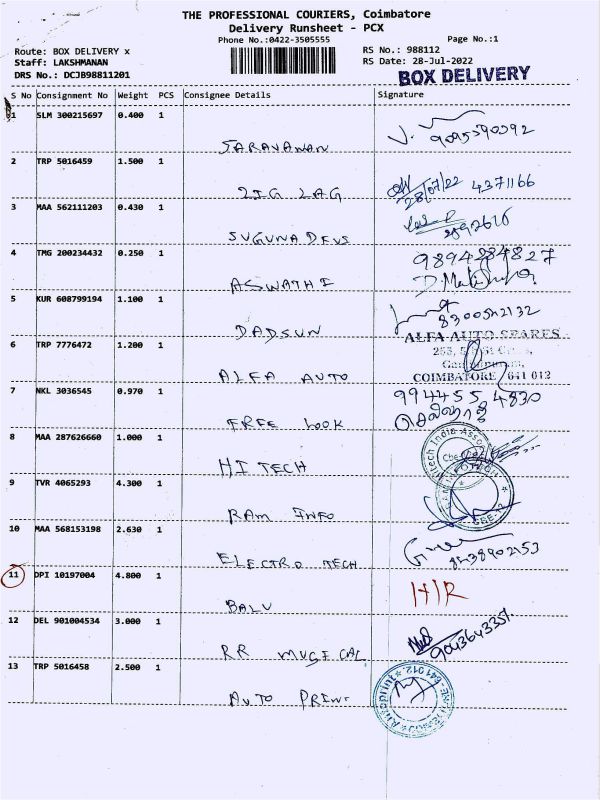 THE PROFESSIONAL COURIERS, Coimbatore
Delivery Runsheet - PCX
Phone No.:0422-3505555
Page No.:1
Route: BOX DELIVERY x
RS No.: 988112
Staff: LAKSHMANAN
RS Date: 28-Jul-2022
DRS No.: DCJB98811201
BOX DELIVERY
S No Consignment No Weight PCS Consignee Details Signature
1 SLM 300215697 0.400 1
SARAVANAN
2 TRP 5016459 1.500 1
ZIG ZAG 28/07/22 4371166
3 MAA 562111203 0.430 1
SUGUNA DEVS
4 TMG 200234432 0.250 1
ASWATHI
5 KUR 608799194 1.100 1
DADSUN 8300512132
6 TRP 7776472 1.200 1 ALFA AUTO SPARES
ALFA AUTO COIMBATORE 641 012
7 NKL 3036545 0.970 1 994455 4830
FREE LOOK
8 MAA 287626660 1.000 1
HI TECH
9 TVR 4065293 4.300 1
RAM INFO
10 MAA 568153198 2.630 1
ELECTRO TECH 8438902153
11 DPI 10197004 4.800 1
BALU
12 DEL 901004534 3.000 1
RR MUSICAL
13 TRP 5016458 2.500 1
AUTO PRINT